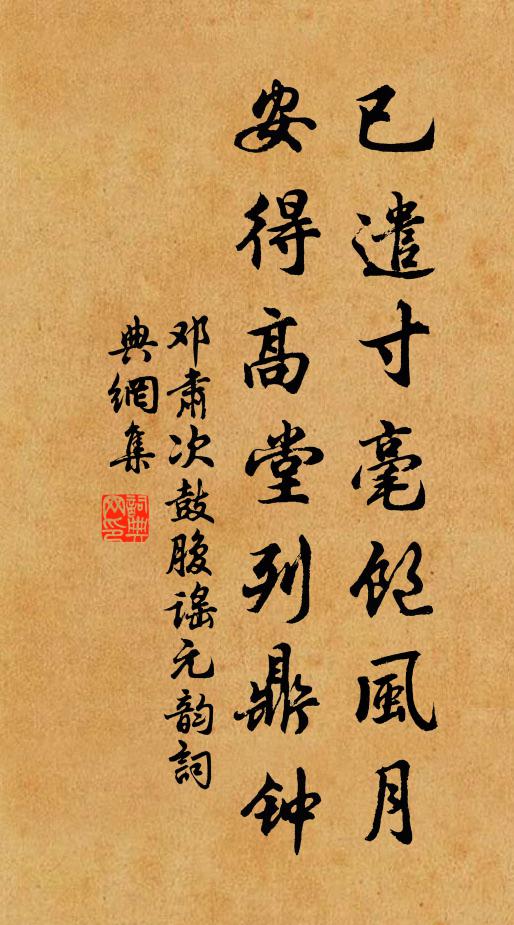 已遣寸毫飽風月
安得高堂列鼎钟
邓肅次鼓腹谣元韵詞
典網集
詞典網印